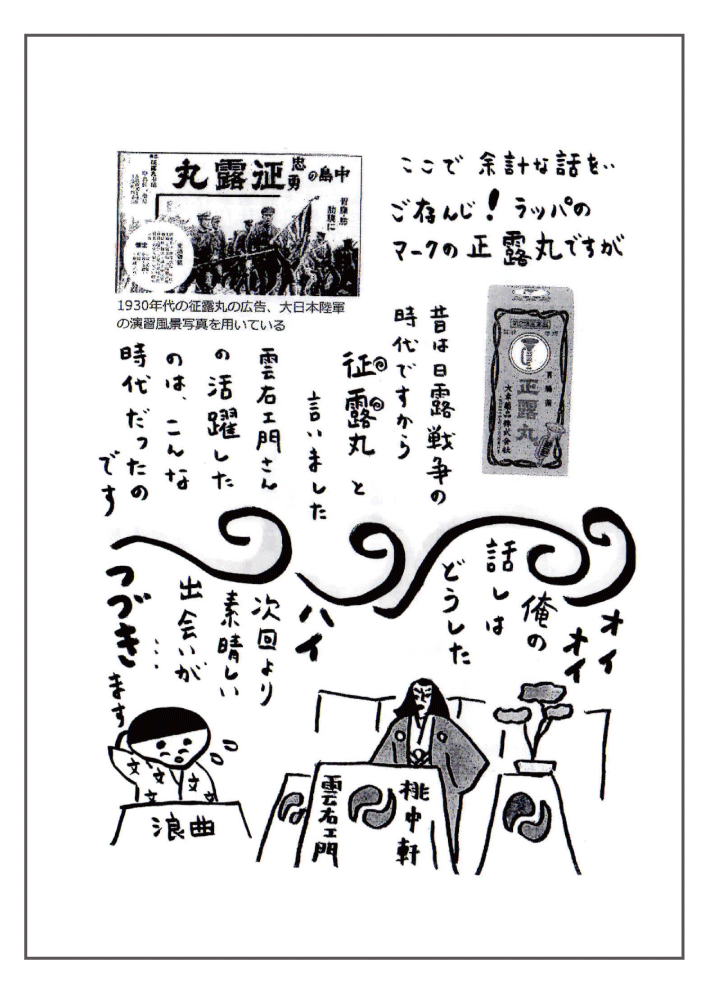 ここで余計な話を‥
ご存んじ！ラッパの
マークの正露丸ですが
中島の忠勇征露丸
1930年代の征露丸の広告、大日本陸軍
の演習風景写真を用いている
正露丸
大幸薬品株式会社
昔は日露戦争の
時代ですから
征露丸と
言いました
雲右エ門さん
の活躍した
のは、こんな
時代だったの
です
オイ
オイ
俺の
話しは
どうした
ハイ
次回より
素晴しい
出会いが
…
つづきます
桃中軒
雲右エ門
浪曲
文
文
文
文